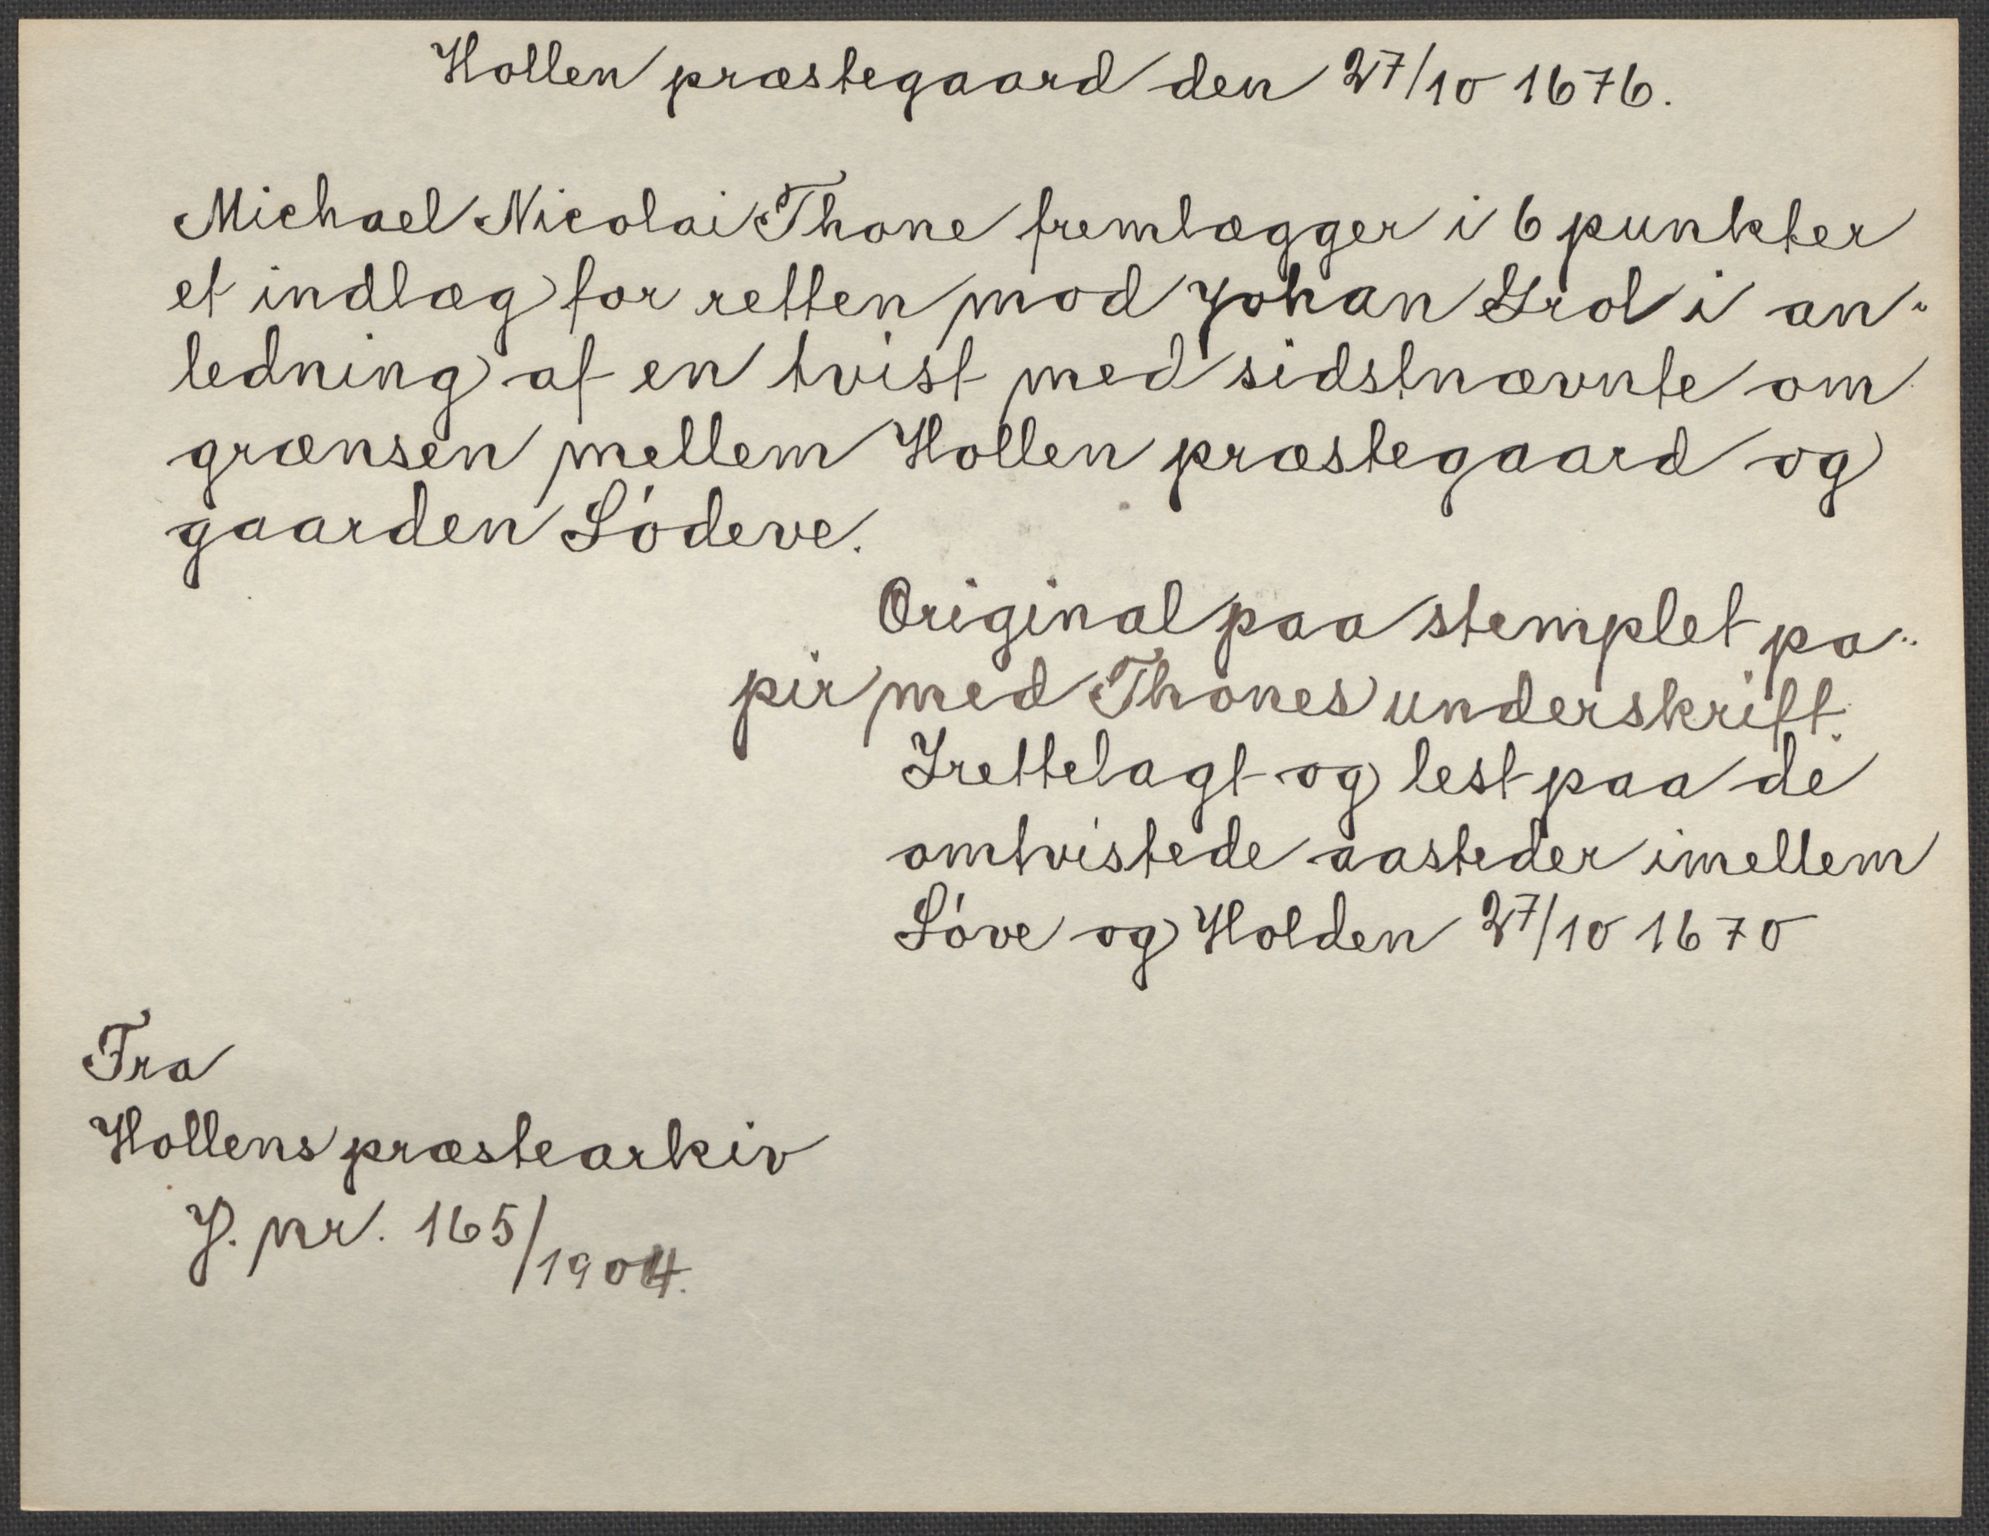 Hollen præstegaard den 27/10 1676.
Michael Nicolai Thone fremlægger i 6 punkter
et indlæg for retten mod Johan Grol i an-
ledning af en tvist med sidstnævnte om
grænsen mellem Hollen præstegaard og
gaarden Lódeve.
Original paa stemplet pa-
pir med Thones underskrift.
Irettelagt og lest paa de
omtvistede aasteder imellem
Lóve og Holden 27/10 1670
Fra
Hollens præstearkiv
J. nr. 165/1904.